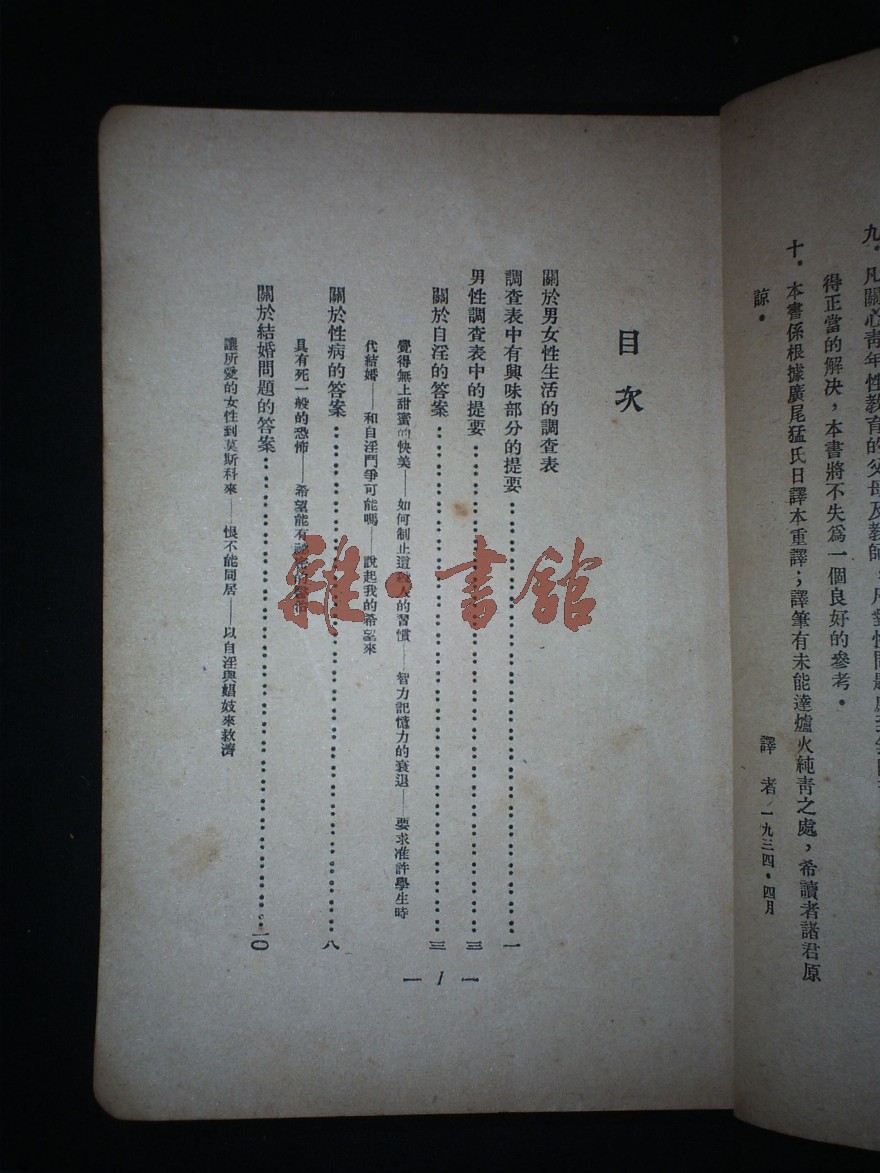 九・凡關心靑年性敎育的父母及敎師，凡對性問題
得正當的解决，本書將不失爲一個良好的參考・
十・本書係根據廣尾猛氏日譯本重譯；譯筆有未能達爐火純靑之處，希讀者諸君原
諒・
譯者 一九三四・四月
目次
關於男女性生活的調查表
調查表中有興味部分的提要……一
男性調查表中的提要……三
關於自淫的答案……三
覺得無上甜蜜的快美——如何制止這 人的習慣——智力記憶力的衰退——要求准許學生時
代結婚——和自淫鬥爭可能嗎——說起我的希望來
關於性病的答案……八
具有死一般的恐怖——希望能有 的
關於結婚問題的答案……一〇
讓所愛的女性到莫斯科來——恨不能同居——以自淫與娼妓來救濟
— 1 —
雜・書館